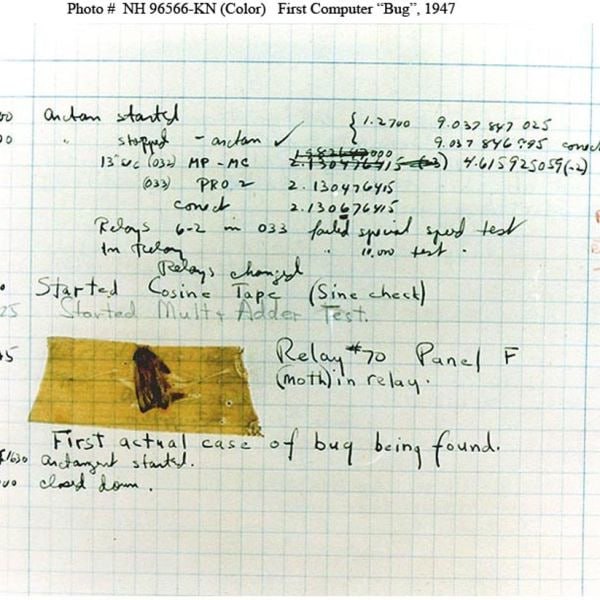 Photo # NH 96566-KN (Color) First Computer “Bug”, 1947
00 arctan started { 1.2700 9.037 847 025
00 " stopped - arctan ✓ 9.037 846 995 conect
13" UC (032) MP - MC 2.130476415 4.615925059(-2)
(033) PRO 2 2.130476415
conect 2.130676415
Relays 6-2 in 033 failed special speed test
In Relay " 10.000 test .
Relays changed
Started Cosine Tape (Sine check)
25 Started Mult + Adder Test.
45 Relay #70 Panel F
(moth) in relay.
First actual case of bug being found.
1630 arctangent started.
00 closed down .